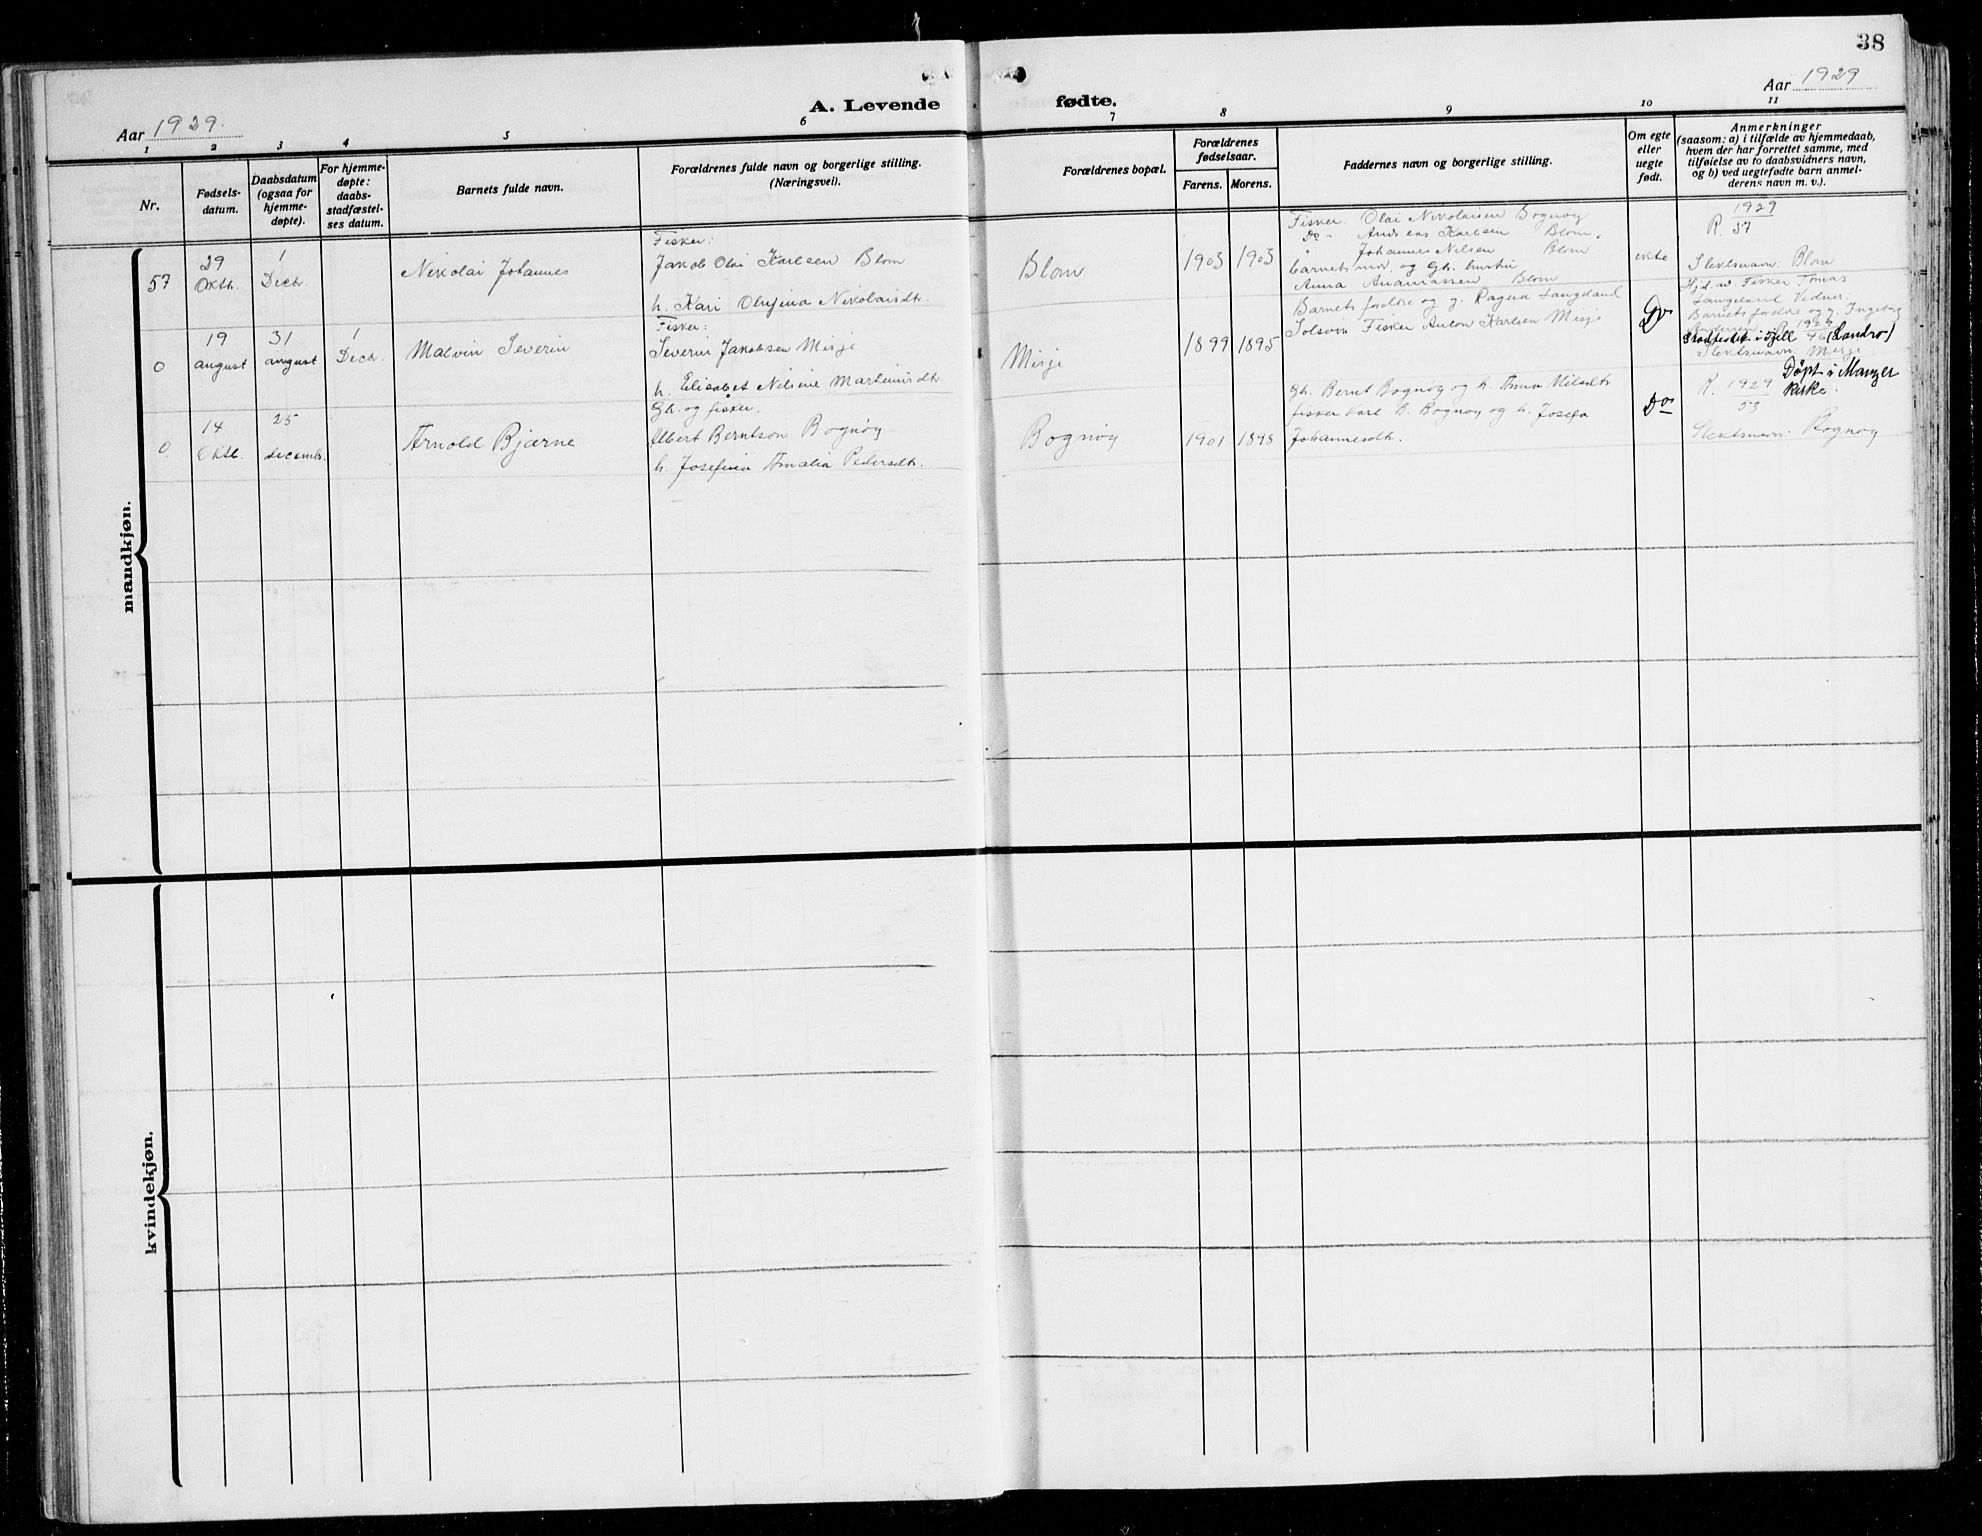 38
Aar 1929.
A. Levende fødte.
Aar 1929
1 2 3 4 5 6 7 8 9 10 11
Nr.
Fødsels-
datum.
Daabsdatum
(ogsaa for
hjemme-
døpte).
For hjemme-
døpte:
daabs-
stadfæstel-
ses datum.
Barnets fulde navn.
Forældrenes fulde navn og borgerlige stilling.
(Næringsvei).
Forældrenes bopæl.
Forældrenes
fødselsaar.
Farens. Morens.
Faddernes navn og borgerlige stilling.
Om egte
eller
uegte
født.
Anmerkninger
(saasom: a) i tilfælde av hjemmedaab,
hvem der har forrettet samme, med
tilføielse av to daabsvidners navn,
og b) ved uegtefødte barn anmel-
derens navn m. v.).
mandkjøn.
57
29
Oktb.
1
Decb.
Nikolai Johannes
Fisker:
Jakob Olai Karlsen Blom
h. Kari Olufina Nikolaisdtr.
Blom
1903 1905
Fisker. Olai Nikolaisen Bognøy
Do - Andreas Karlsen Blom.
" Johannes Nilsen Blom
barnets mor og Gh. hustru
Anna Ananiassen Blom
ekte
1929
R. 57
Slektsnavn: Blom
0
19
august
31
august
1
Decb.
Malvin Severin
Fisker:
Severin Jakobsen Misje
h. Elisabet Nilsine Martinusdtr.
Misje
1899 1895
Barnets foreldre og g. Ragna Langeland
Solsvik Fisker Anton Karlsen Misje
Do
Hjd. av Fisker Tomas
Langeland Vidner:
Barnets foreldre og g. Ingeborg
Stadfestet i Fjell (Landro)
Slektsnavn: Misje
0
14
Oktb.
25
decemb.
Arnold Bjarne
Gh. og fisker.
Albert Berntson Bognøy
h. Josefina Amalia Pedersdtr.
Bognøy
1901 1898
Gh. Bernt Bognøy og h. Anna Nilsdtr
fisker Karl B. Bognøy og h. Josefa
Johannesdtr.
Do
R. 1929
53
Døpt i Manger
kirke.
Slektsnavn: Bognøy
kvindekjøn.